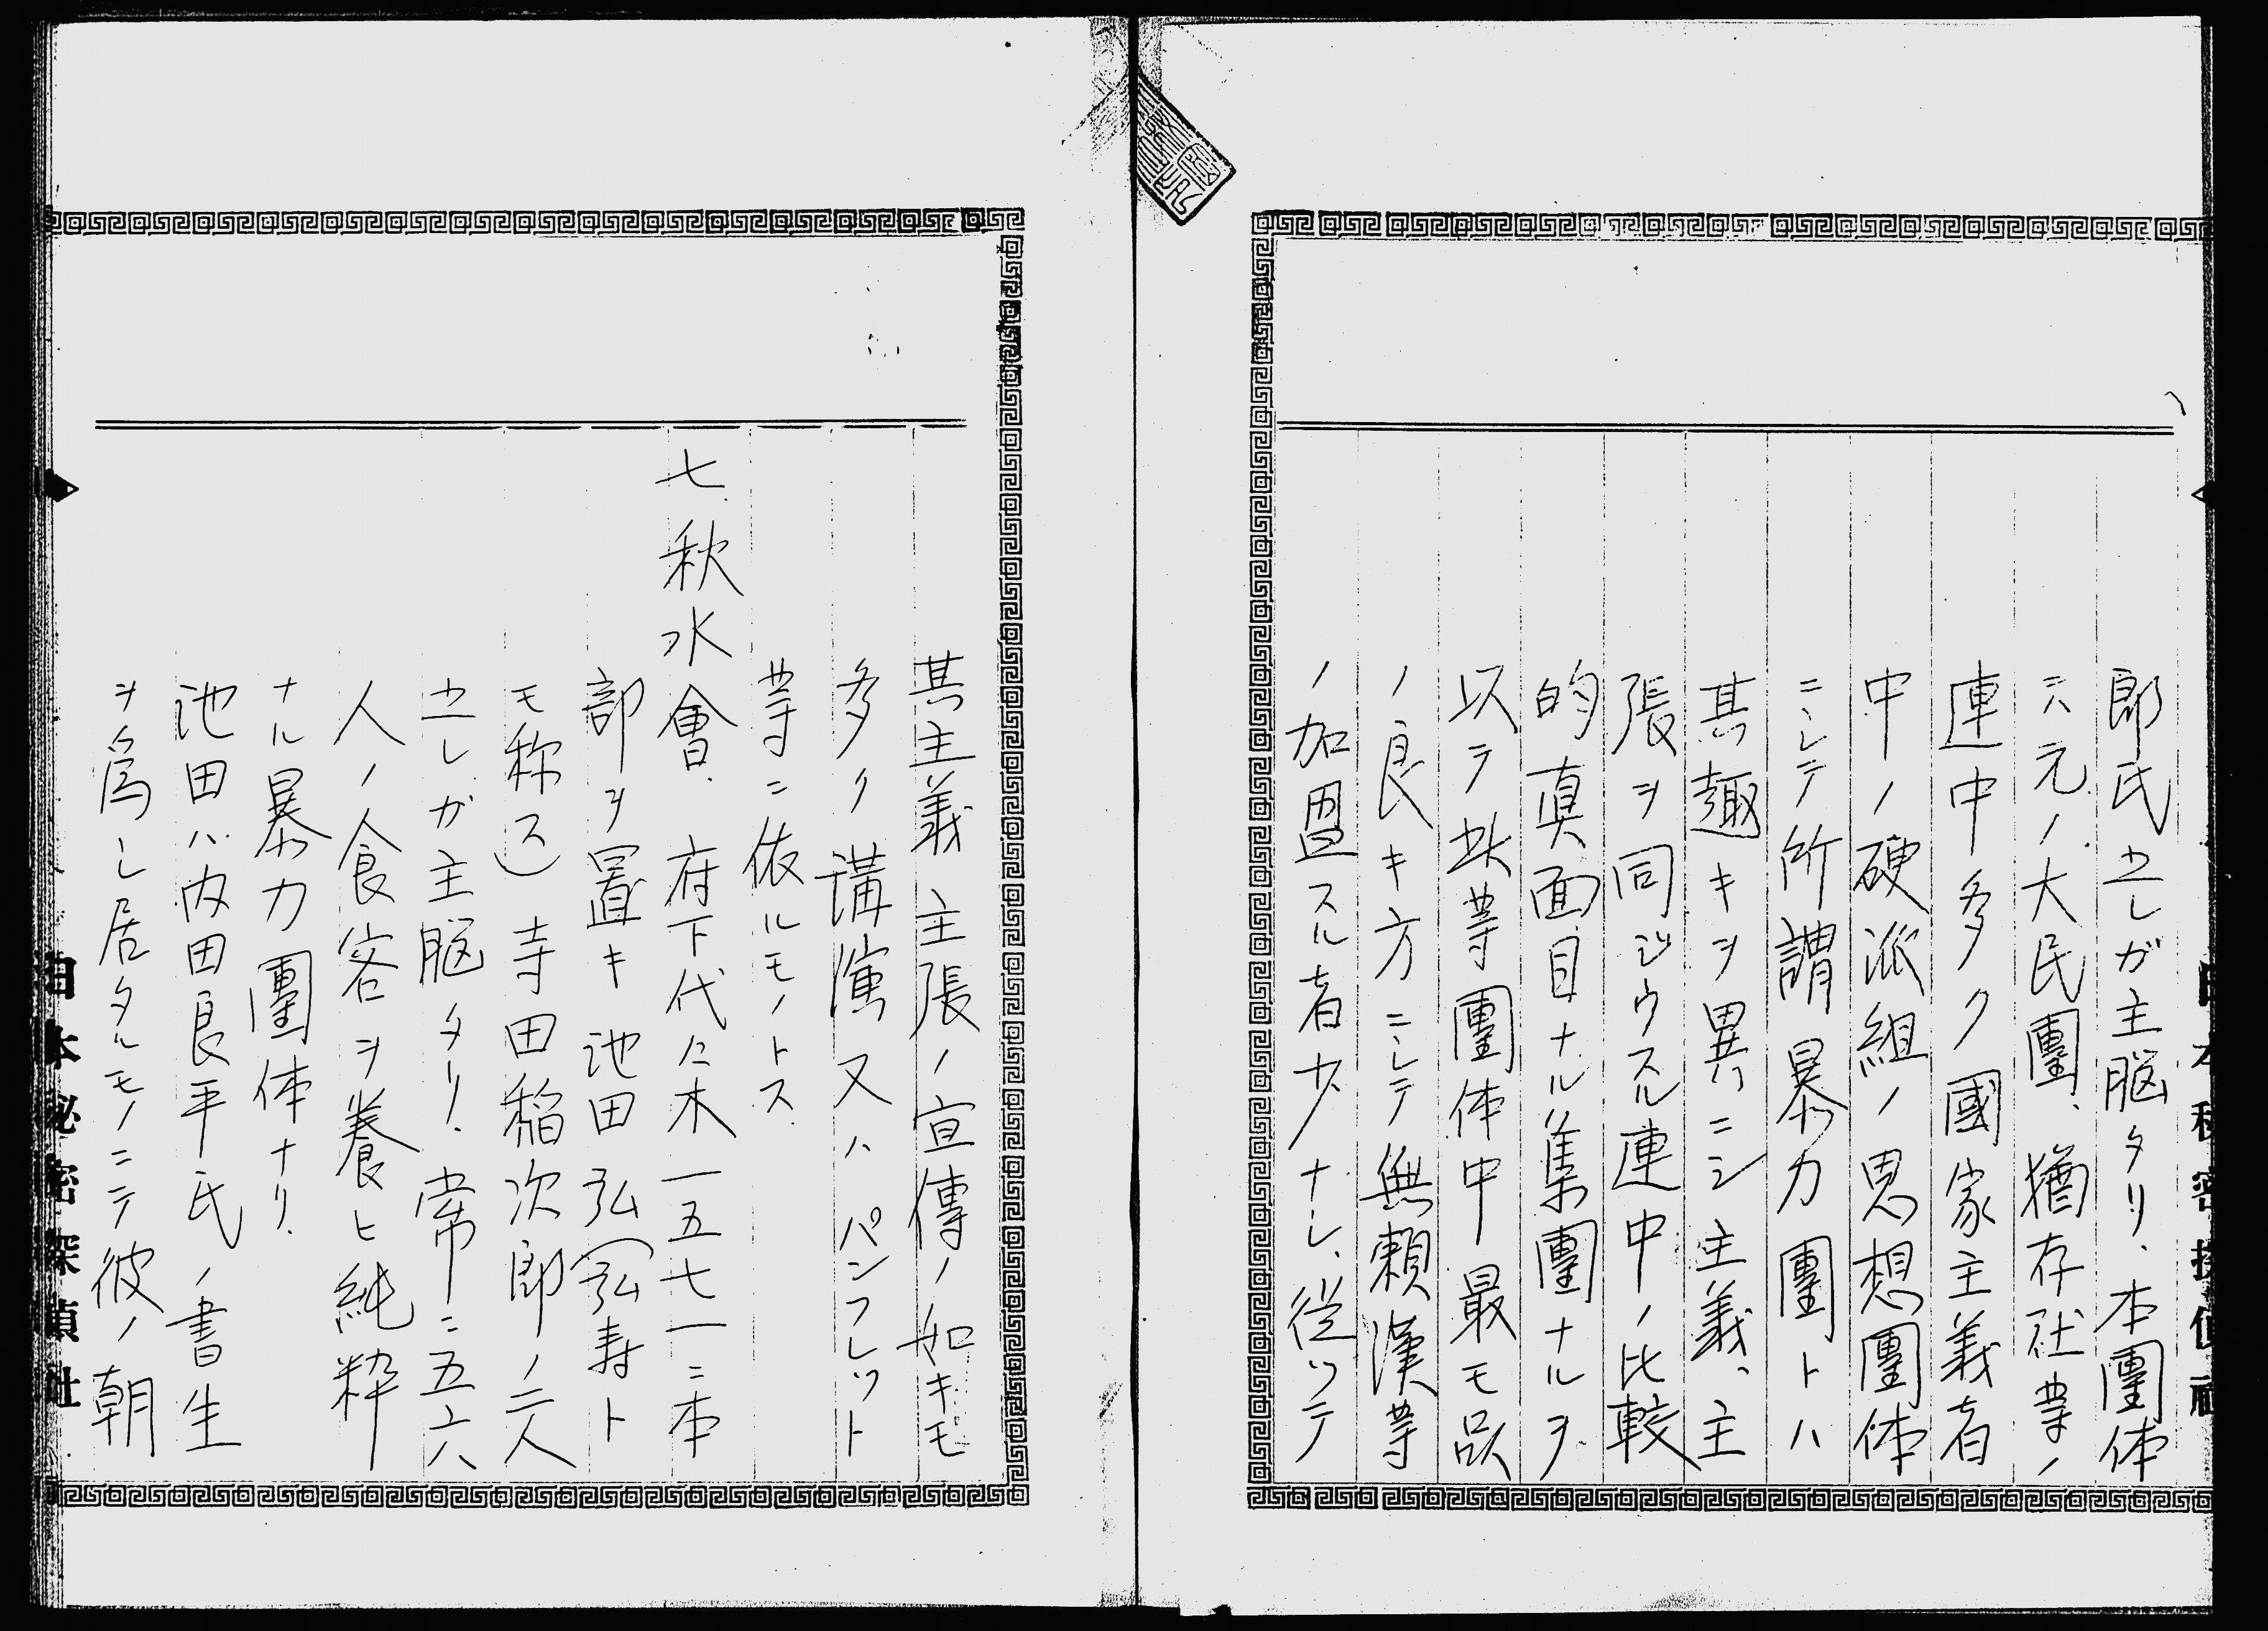 郎氏之レガ主脳タリ、本團体
ニハ元ノ大民團、猶存社等ノ
連中多ク國家主義者
中ノ硬派組ノ思想團体
ニシテ所謂暴力團トハ
其趣キヲ異ニシ主義、主
張ヲ同ジウスル連中ノ比較
的真面目ナル集團ナルヲ
以テ此等團体中最モ品
ノ良キ方ニシテ無頼漢等
ノ加盟スル者少ナシ、從ツテ
其主義主張ノ宣傳ノ如キモ
多ク講演又ハパンフレット
等ニ依ルモノトス
七、秋水會、府下代々木一五七一ニ本
部ヲ置キ池田弘(弘寿ト
モ称ス)寺田稲次郎ノ二人
之レガ主脳タリ、常ニ五六
人ノ食客ヲ養ヒ純粋
ナル暴力團体ナリ、
池田ハ内田良平氏ノ書生
ヲ為シ居タルモノニテ彼ノ朝
日本秘密探偵社